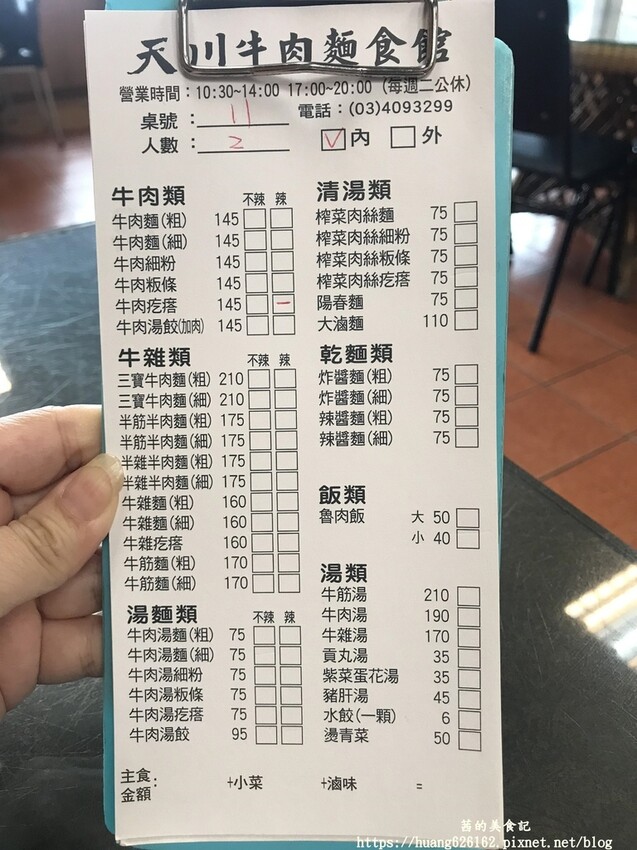 天川牛肉麵食館
營業時間：10:30~14:00 17:00~20:00（每週二公休）
桌號：11 電話：(03)4093299
人數：2 ☑內 □外
牛肉類 不辣 辣
牛肉麵(粗) 145
牛肉麵(細) 145
牛肉細粉 145
牛肉粄條 145
牛肉疙瘩 145 一
牛肉湯餃(加肉) 145
牛雜類 不辣 辣
三寶牛肉麵(粗) 210
三寶牛肉麵(細) 210
半筋半肉麵(粗) 175
半筋半肉麵(細) 175
半雜半肉麵(粗) 175
半雜半肉麵(細) 175
牛雜麵(粗) 160
牛雜麵(細) 160
牛雜疙瘩 160
牛筋麵(粗) 170
牛筋麵(細) 170
湯麵類 不辣 辣
牛肉湯麵(粗) 75
牛肉湯麵(細) 75
牛肉湯細粉 75
牛肉湯粄條 75
牛肉湯疙瘩 75
牛肉湯餃 95
清湯類
榨菜肉絲麵 75
榨菜肉絲細粉 75
榨菜肉絲粄條 75
榨菜肉絲疙瘩 75
陽春麵 75
大滷麵 110
乾麵類
炸醬麵(粗) 75
炸醬麵(細) 75
辣醬麵(粗) 75
辣醬麵(細) 75
飯類
魯肉飯 大 50
小 40
湯類
牛筋湯 210
牛肉湯 190
牛雜湯 170
貢丸湯 35
紫菜蛋花湯 35
豬肝湯 45
水餃(一顆) 6
燙青菜 50
主食
金額： +小菜 +滷味 =
茜的美食記
https://huang626162.pixnet.net/blog